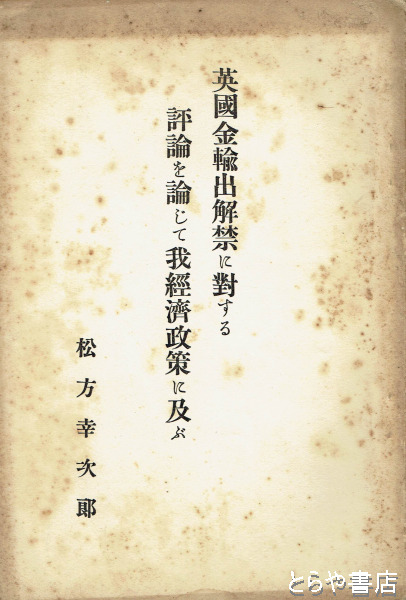 英國金輸出解禁に對する
評論を論じて我經濟政策に及ぶ
松方幸次郞
とらや書店